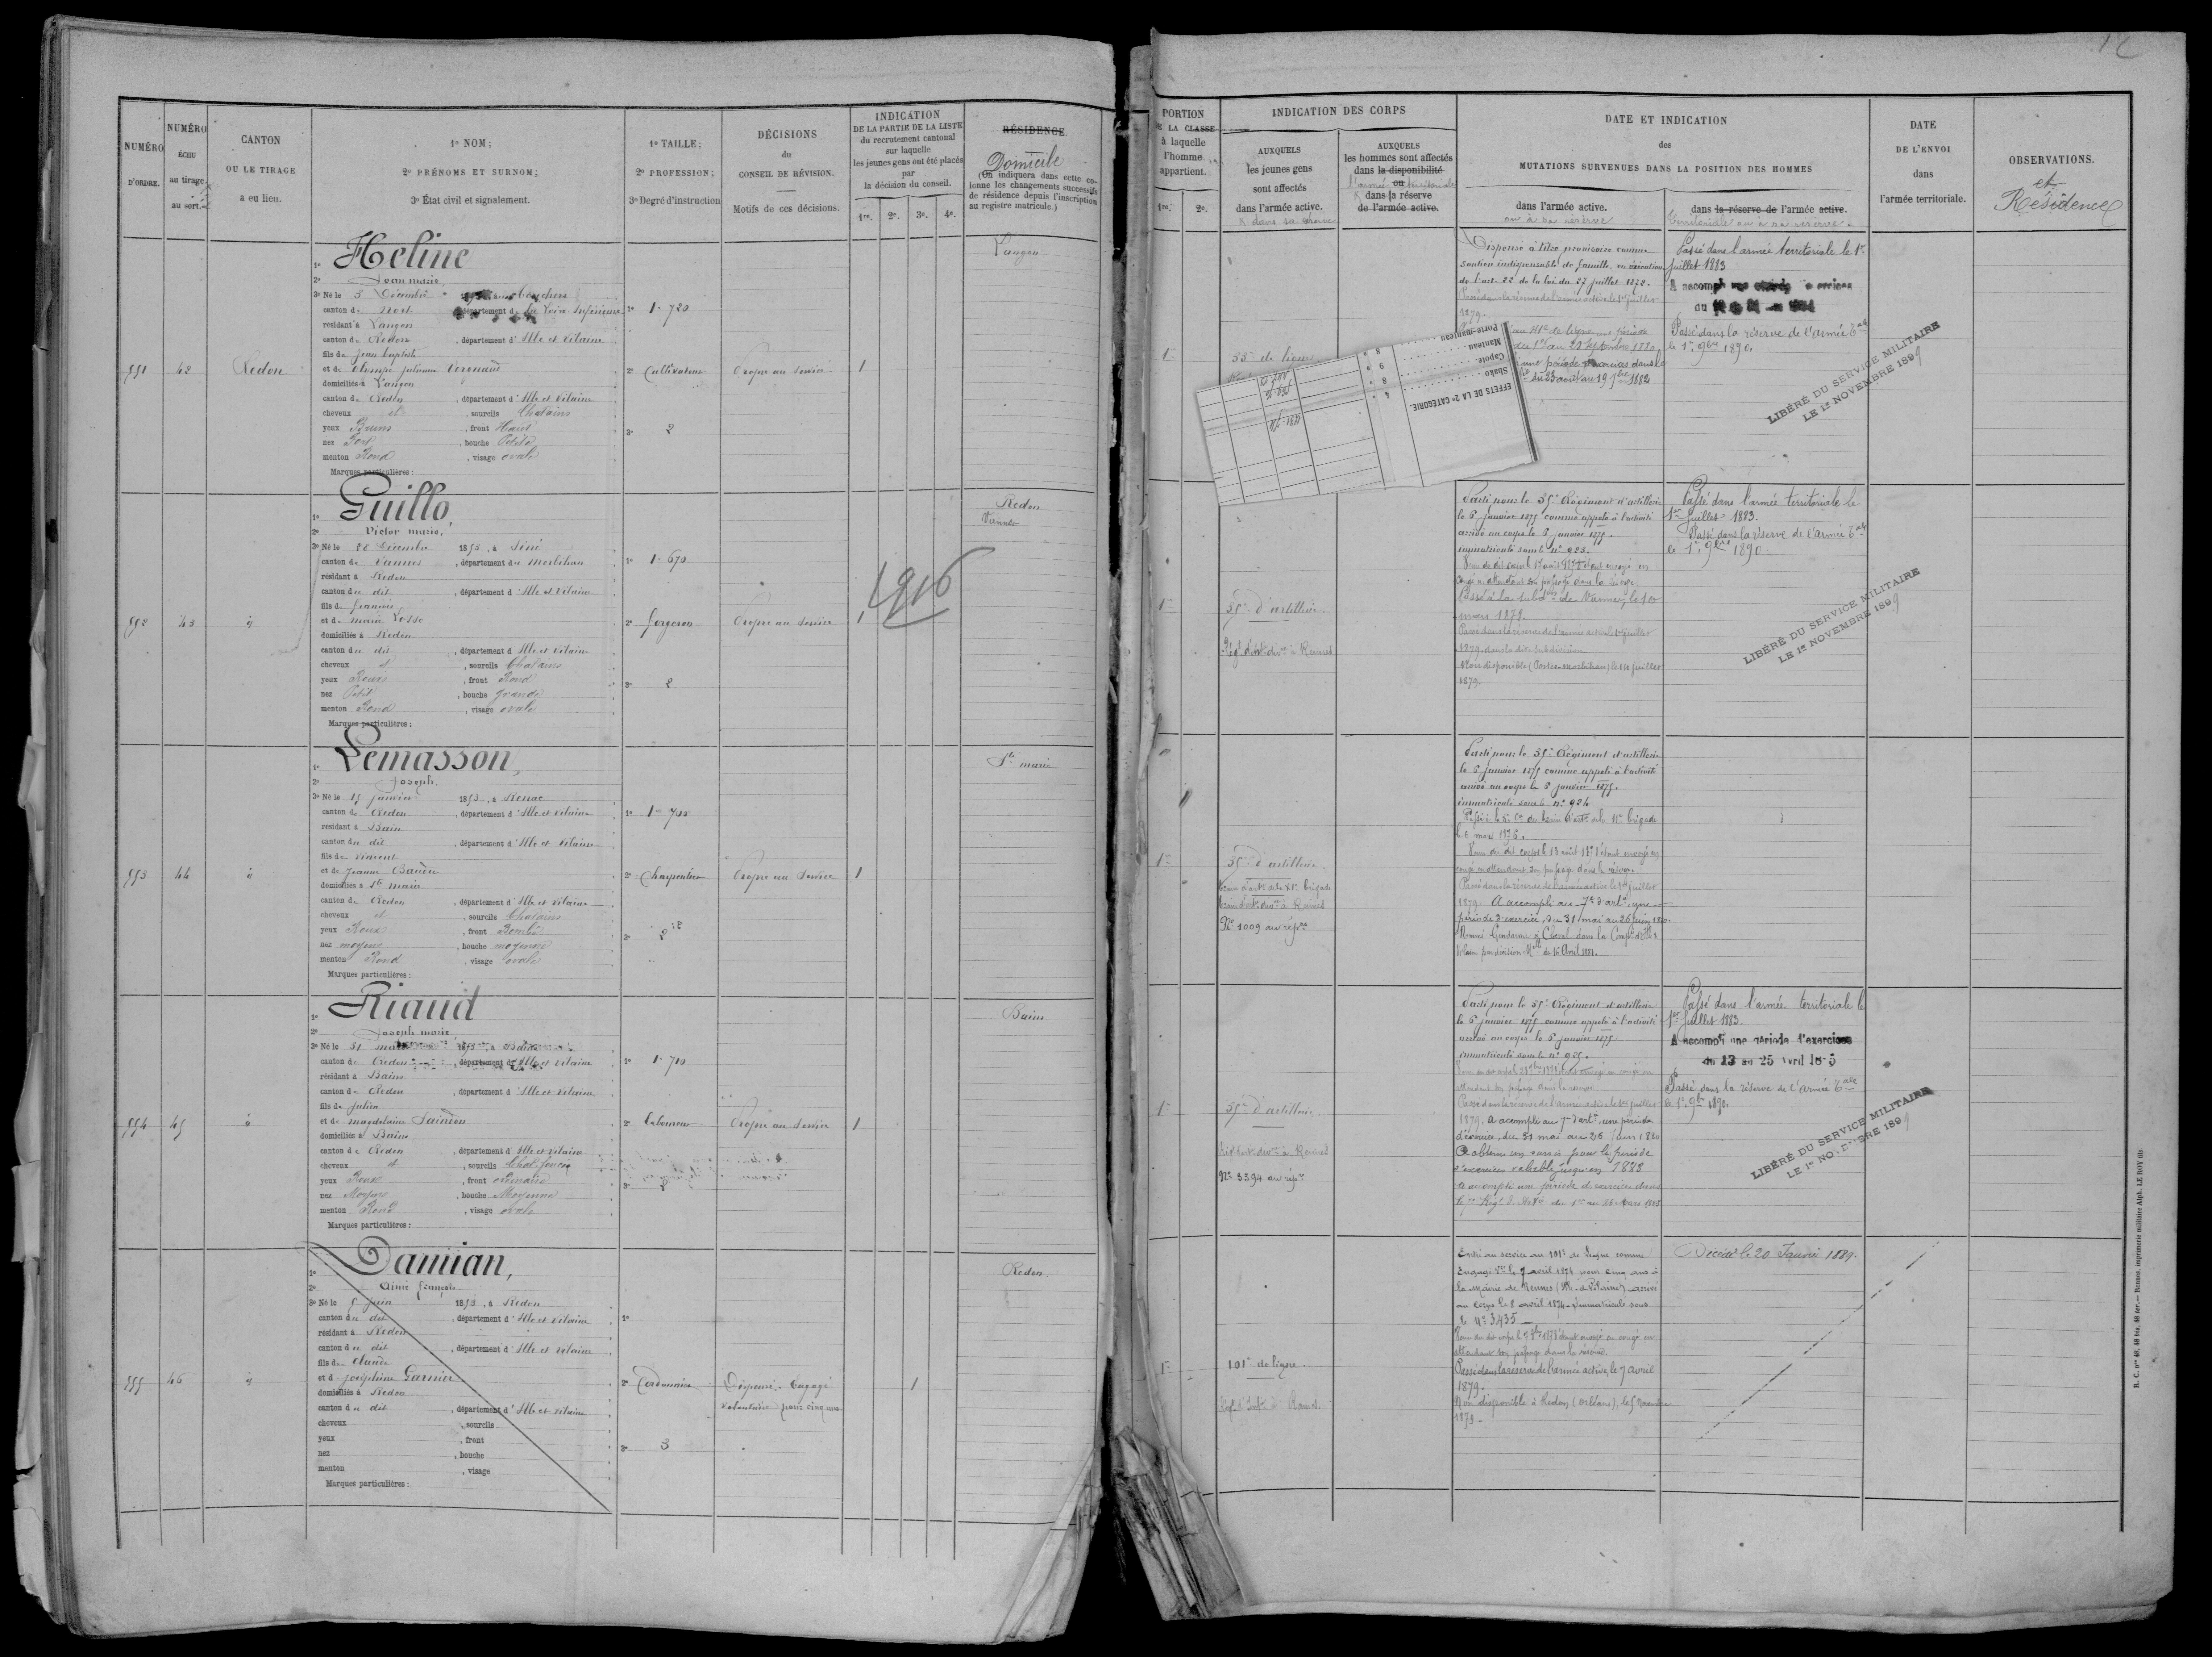 12
NUMÉRO D'ORDRE.
NUMÉRO ÉCHU au tirage au sort.
CANTON OU LE TIRAGE a eu lieu.
1º NOM;
2º PRÉNOMS ET SURNOM;
3º État civil et signalement.
1º TAILLE;
2º PROFESSION;
3º Degré d'instruction
DÉCISIONS du CONSEIL DE RÉVISION.
Motifs de ces décisions.
INDICATION
DE LA PARTIE DE LA LISTE
du recrutement cantonal
sur laquelle
les jeunes gens ont été placés
par
la décision du conseil.
1re. 2e. 3e. 4e.
RÉSIDENCE.
Domicile
(On indiquera dans cette co-
lonne les changements successifs
de résidence depuis l'inscription
au registre matricule.)
PORTION
DE LA CLASSE
à laquelle
l'homme
appartient.
1re. 2e.
INDICATION DES CORPS
AUXQUELS
les jeunes gens
sont affectés
dans l'armée active.
AUXQUELS
les hommes sont affectés
dans la disponibilité
ou
l'armée territoriale
dans la réserve
de l'armée active.
DATE ET INDICATION
des
MUTATIONS SURVENUES DANS LA POSITION DES HOMMES
dans l'armée active.
ou à sa réserve
dans la réserve de l'armée active.
territoriale ou à sa réserve.
DATE
DE L'ENVOI
dans
l'armée territoriale.
OBSERVATIONS.
et
Résidence
991
42
Redon
1º Heline
2º Jean marie
3º Né le 5 Décembre
canton de Nort, département de la Loire Inférieure
résidant à Langon
canton de Redon, département d'Ille et Vilaine
fils de Jean baptiste
et de Olympe julienne
domiciliés à Langon
canton de Redon, département d'Ille et Vilaine
cheveux et, sourcils Chatains
yeux Bruns, front Haut
nez Fort, bouche Petite
menton Rond, visage ovale
Marques particulières :
1º 1m 720
2º Cultivateur
3º 2
Propre au Service
1
Langon
1re
55e de ligne
Dispensé à titre provisoire comme
soutien indispensable de famille, en exécution
de l'art. 22 de la loi du 27 juillet 1872.
Passé dans la réserve de l'armée active le 1er juillet
1879.
une période
du 1er au 28 Septembre 1880.
une période d'exercices dans le
du 23 août au 19 7bre 1882
Passé dans l'armée territoriale le 1er
juillet 1883
A accompli
du
Passé dans la réserve de l'armée Tale
le 1er 9bre 1890.
LIBÉRÉ DU SERVICE MILITAIRE
LE 1er NOVEMBRE 1899
EFFETS DE LA 2e CATÉGORIE.
Shako
Capote
Manteau
Porte-manteau
992
43
id
1º Guillo,
2º Victor marie,
3º Né le 28 Décembre 1853, à Séné
canton de Vannes, département du Morbihan
résidant à Redon
canton du dit, département d'Ille et Vilaine
fils de francois
et de marie
domiciliés à Redon
canton du dit, département d'Ille et Vilaine
cheveux et, sourcils Chatains
yeux Roux, front Rond
nez Petit, bouche grande
menton Rond, visage ovale
Marques particulières :
1º 1m 670
2º forgeron
3º 2
Propre au Service
1
1916
Redon
Vannes
1re
35e d'artillerie
Régt d'artie divre à Rennes
Parti pour le 35e Régiment d'artillerie
le 6 janvier 1875 comme appelé à l'activité
arrivé au corps le 6 janvier 1875.
immatriculé sous le nº 923.
congé en attendant son passage dans la réserve.
Passé à la subdon de Vannes, le 10
mars 1879.
Passé dans la réserve de l'armée active le 1er juillet
1879, dans la dite subdivision
Non disponible (Postes Morbihan) le 14 juillet
1879.
Passé dans l'armée territoriale le
1er Juillet 1883.
Passé dans la réserve de l'Armée Tale
le 1er 9bre 1890
LIBÉRÉ DU SERVICE MILITAIRE
LE 1er NOVEMBRE 1899
993
44
id
1º Lemasson,
2º Joseph,
3º Né le 15 janvier 1853, à Renac
canton de Redon, département d'Ille et Vilaine
résidant à Bain
canton du dit, département d'Ille et Vilaine
fils de Vincent
et de jeanne
domiciliés à Ste marie
canton de Redon, département d'Ille et Vilaine
cheveux et, sourcils Chatains
yeux Roux, front Bombé
nez moyen, bouche moyenne
menton Rond, visage ovale
Marques particulières :
1º 1m 700
2º Charpentier
3º 2
Propre au Service
1
Ste marie
1re
35e d'artillerie
train d'artie de la 11e brigade
train d'artie divre à Rennes
Nº 1009 au répre
Parti pour le 35e Régiment d'artillerie
le 6 janvier 1875 comme appelé à l'activité
arrivé au corps le 6 janvier 1875.
immatriculé sous le nº 924
Passé à la 5e Cie du train d'artie de la 11e brigade
le 6 mars 1876.
congé en attendant son passage dans la réserve.
Passé dans la réserve de l'armée active le 1er juillet
1879. A accompli au 7e d'artie, une
période d'exercice, du 31 mai au 26 juin 1880.
Nommé Gendarme à Cheval dans la Compie d'Ille &
Vilaine par décision Mlle du 16 Avril 1881.
994
45
id
1º Riaud
2º Joseph marie
3º Né le 31 mai 1853, à Bains
canton de Redon, département d'Ille et Vilaine
résidant à Bains
canton de Redon, département d'Ille et Vilaine
fils de julien
et de magdelaine
domiciliés à Bains
canton de Redon, département d'Ille et Vilaine
cheveux et, sourcils Chat. foncés
yeux Roux, front
nez Moyen, bouche Moyenne
menton Rond, visage ovale
Marques particulières :
1º 1m 710
2º Laboureur
3º 2
Propre au Service
1
Bains
1re
35e d'artillerie
Régt d'artie divre à Rennes
Nº 3394 au répre
Parti pour le 35e Régiment d'artillerie
le 6 janvier 1875 comme appelé à l'activité
arrivé au corps le 6 janvier 1875
immatriculé sous le nº 925.
attendant son passage dans la réserve
Passé dans la réserve de l'armée active le 1er juillet
1879. A accompli au 7e d'artie, une période
d'exercice, du 31 mai au 26 juin 1880
A obtenu un sursis pour la période
d'exercices valable jusqu'en 1883
A accompli une période d'exercices dans
le 7e Régt d'Artie du 1er au 28 mars 1883
Passé dans l'armée territoriale le
1er Juillet 1883.
A accompli une période d'exercices
du 13 au 25 avril
Passé dans la réserve de l'Armée Tale
le 1er 9bre 1890.
LIBÉRÉ DU SERVICE MILITAIRE
LE 1er NOVEMBRE 1899
995
46
id
1º Damian,
2º Aimé françois
3º Né le 5 juin 1853, à Redon
canton du dit, département d'Ille et Vilaine
résidant à Redon
canton du dit, département d'Ille et Vilaine
fils de claude
et d joséphine Garnier
domiciliés à Redon
canton du dit, département d'Ille et Vilaine
cheveux, sourcils
yeux, front
nez, bouche
menton, visage
Marques particulières :
1º
2º Cordonnier
3º 3
Dispensé. Engagé
volontaire pour cinq ans
1
Redon.
1re
101e de ligne
Entré au service au 101e de ligne comme
Engagé Vre le 7 avril 1874 pour cinq ans à
la mairie de Rennes (Ille-et-Vilaine) arrivé
au corps le 8 avril 1874. Immatriculé sous
le Nº 3435
attendant son passage dans la réserve.
Passé dans la réserve de l'armée active, le 7 avril
1879.
Non disponible à Redon (Orléans), le 5
1879
Décédé le 20 Janvier 1889.
R. C. nos 48, 48 bis, 48 ter. — Rennes, imprimerie militaire Alph. LE ROY fils